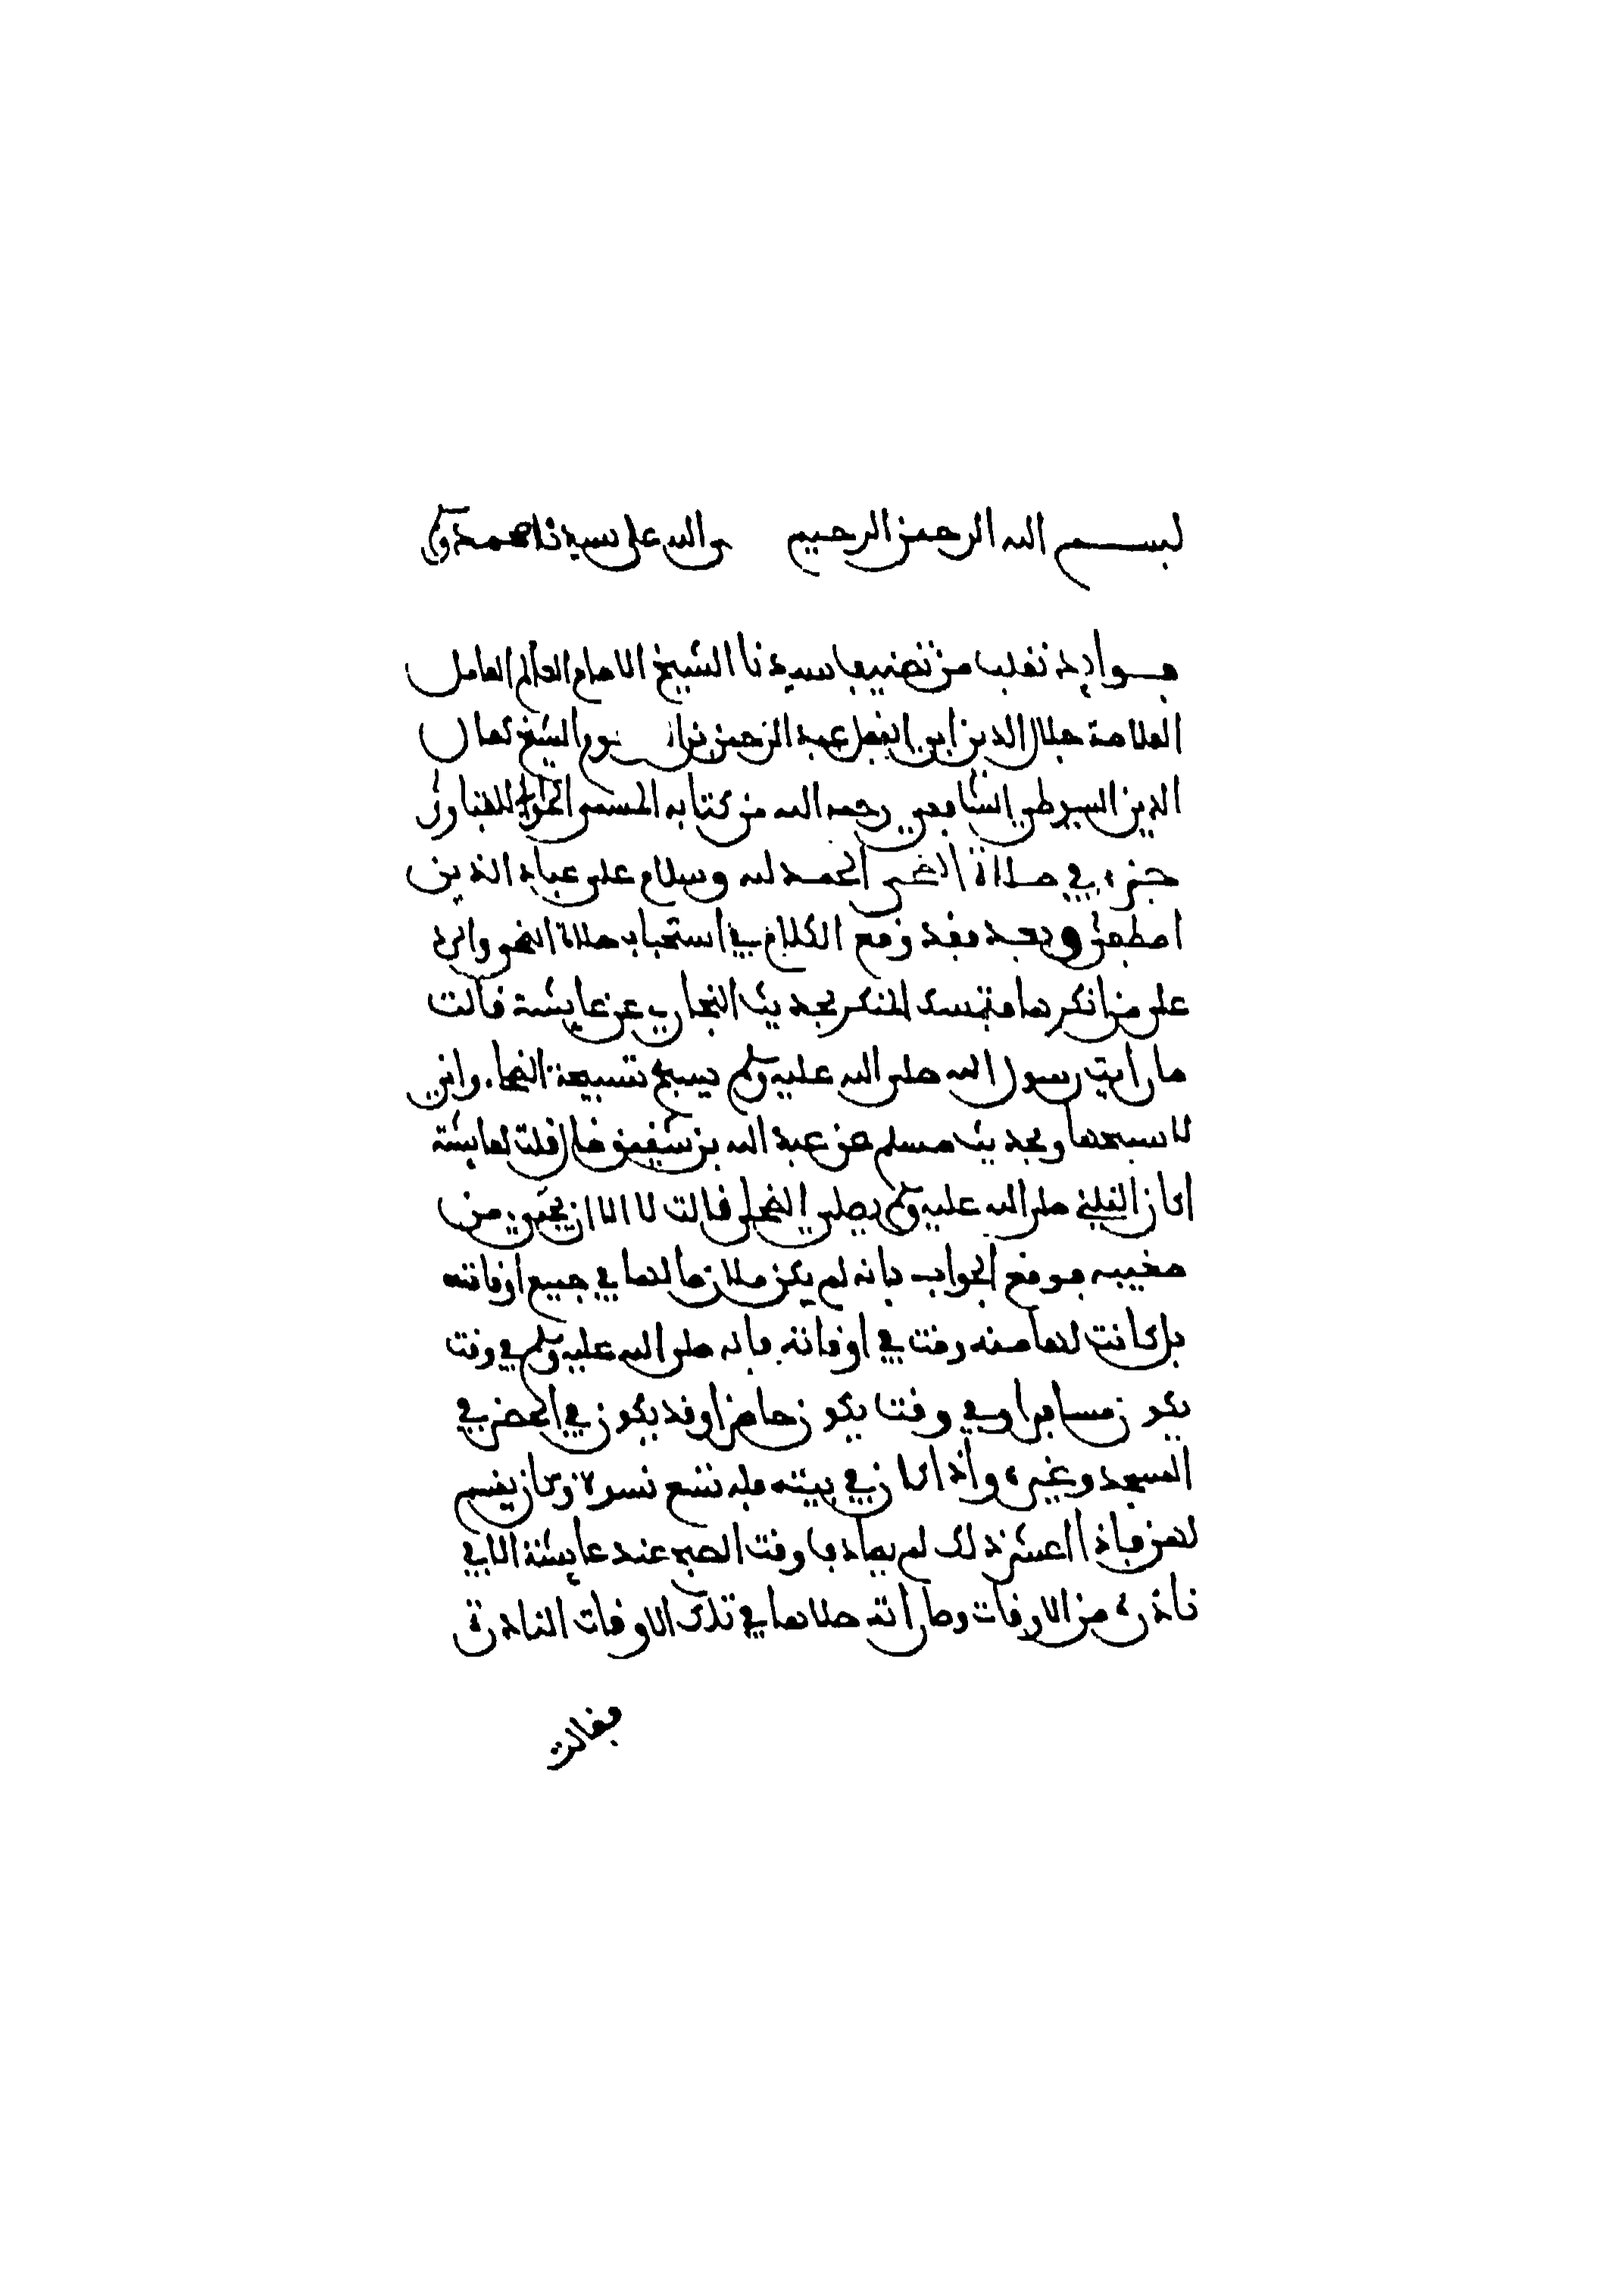 بسم الله الرحمن الرحيم صلى الله على سيدنا محمد و
فوائد نقلت من تصنيف سيدنا الشيخ الامام العالم العامل
العلامة جلال الدين ابي الفضل عبد الرحمن بن الشيخ كمال
الدين السيوطي الشافعي رحمه الله من كتابه المسمى الحاوي للفتاوى
جزء في صلاة الضحى الحمد لله وسلام على عباده الذين
اصطفى وبعد فقد وقع الكلام في استحباب صلاة الضحى والرد
على من انكرها فتمسك المنكر بحديث البخاري عن عايشة قالت
ما رأيت رسول الله صلى الله عليه وسلم يسبح تسبيحة الضحا وإني
لاسبحها وبحديث مسلم عن عبد الله بن شقيق قال قلت لعايشة
اكان النبي صلى الله عليه وسلم يصلي الضحى قالت لا الا ان يجيء من
مغيبه فوقع الجواب بانه لم يكن ملازما لها في جميع اوقاته
بل كانت لها منه وقت في اوقاته فانه صلى الله عليه وسلم في وقت
يكون مسافرا وفي وقت يكون حاضرا وقد يكون في الحضر في
المسجد وغيره واذا كان في بيته فله تسع نسوة وكان يقسم
لهن فاذا اعتبر ذلك لم يصادف وقت الضحى عند عايشة الا في
نادرة من الاوقات وما رأته صلاها في تلك الاوقات النادرة
فقالت